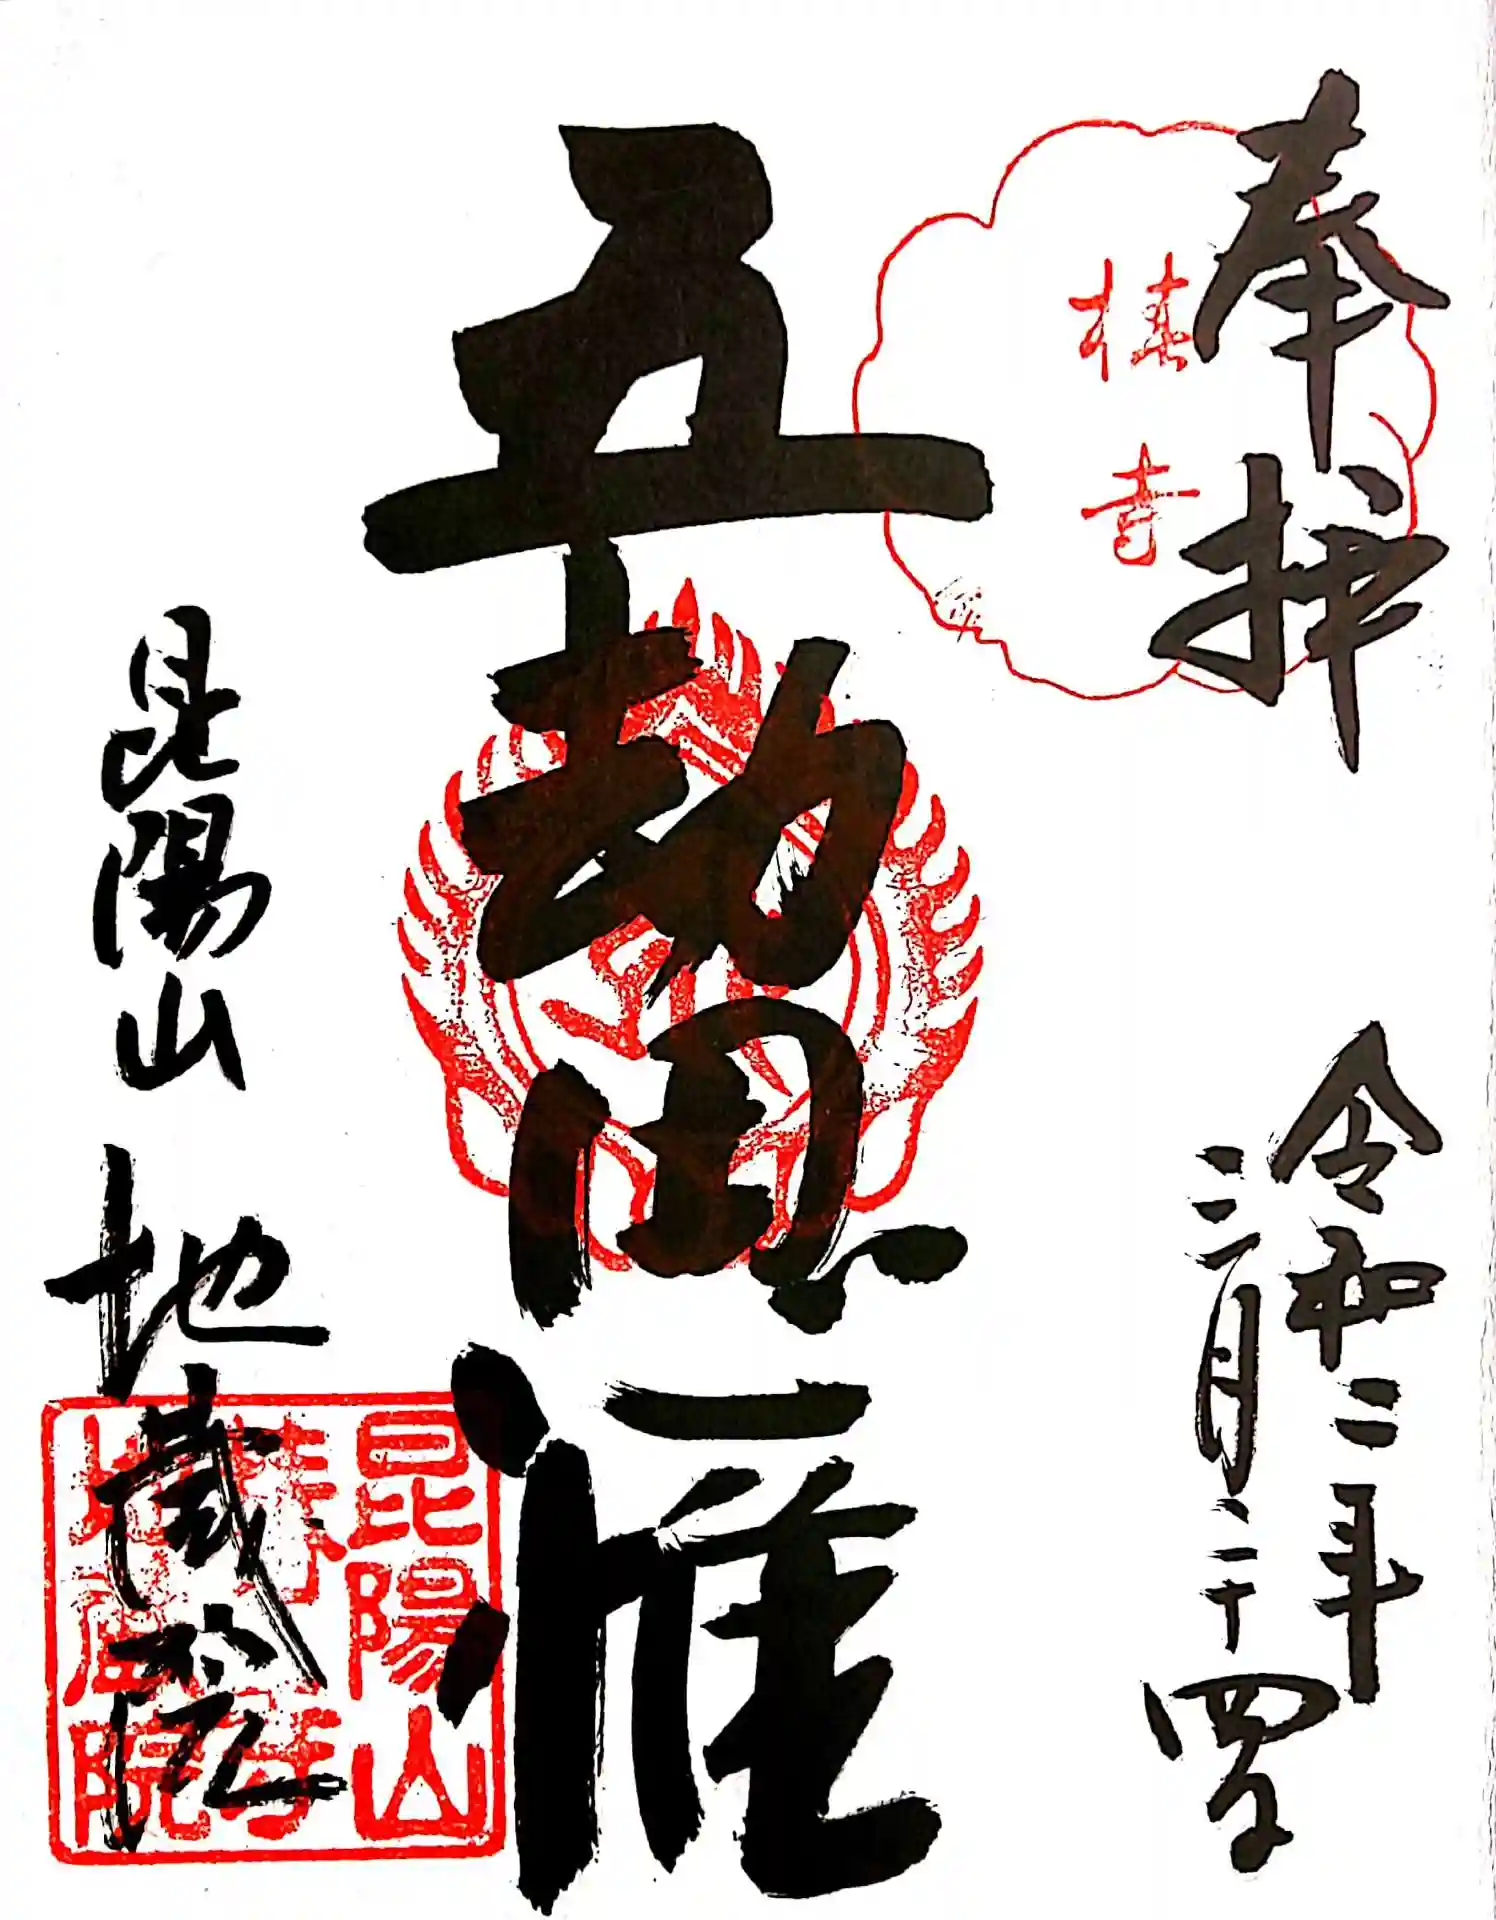 奉拝
椿寺
令和二年
三月二十四日
五劫思惟
昆陽山 地蔵院
昆陽山
椿寺
地蔵院